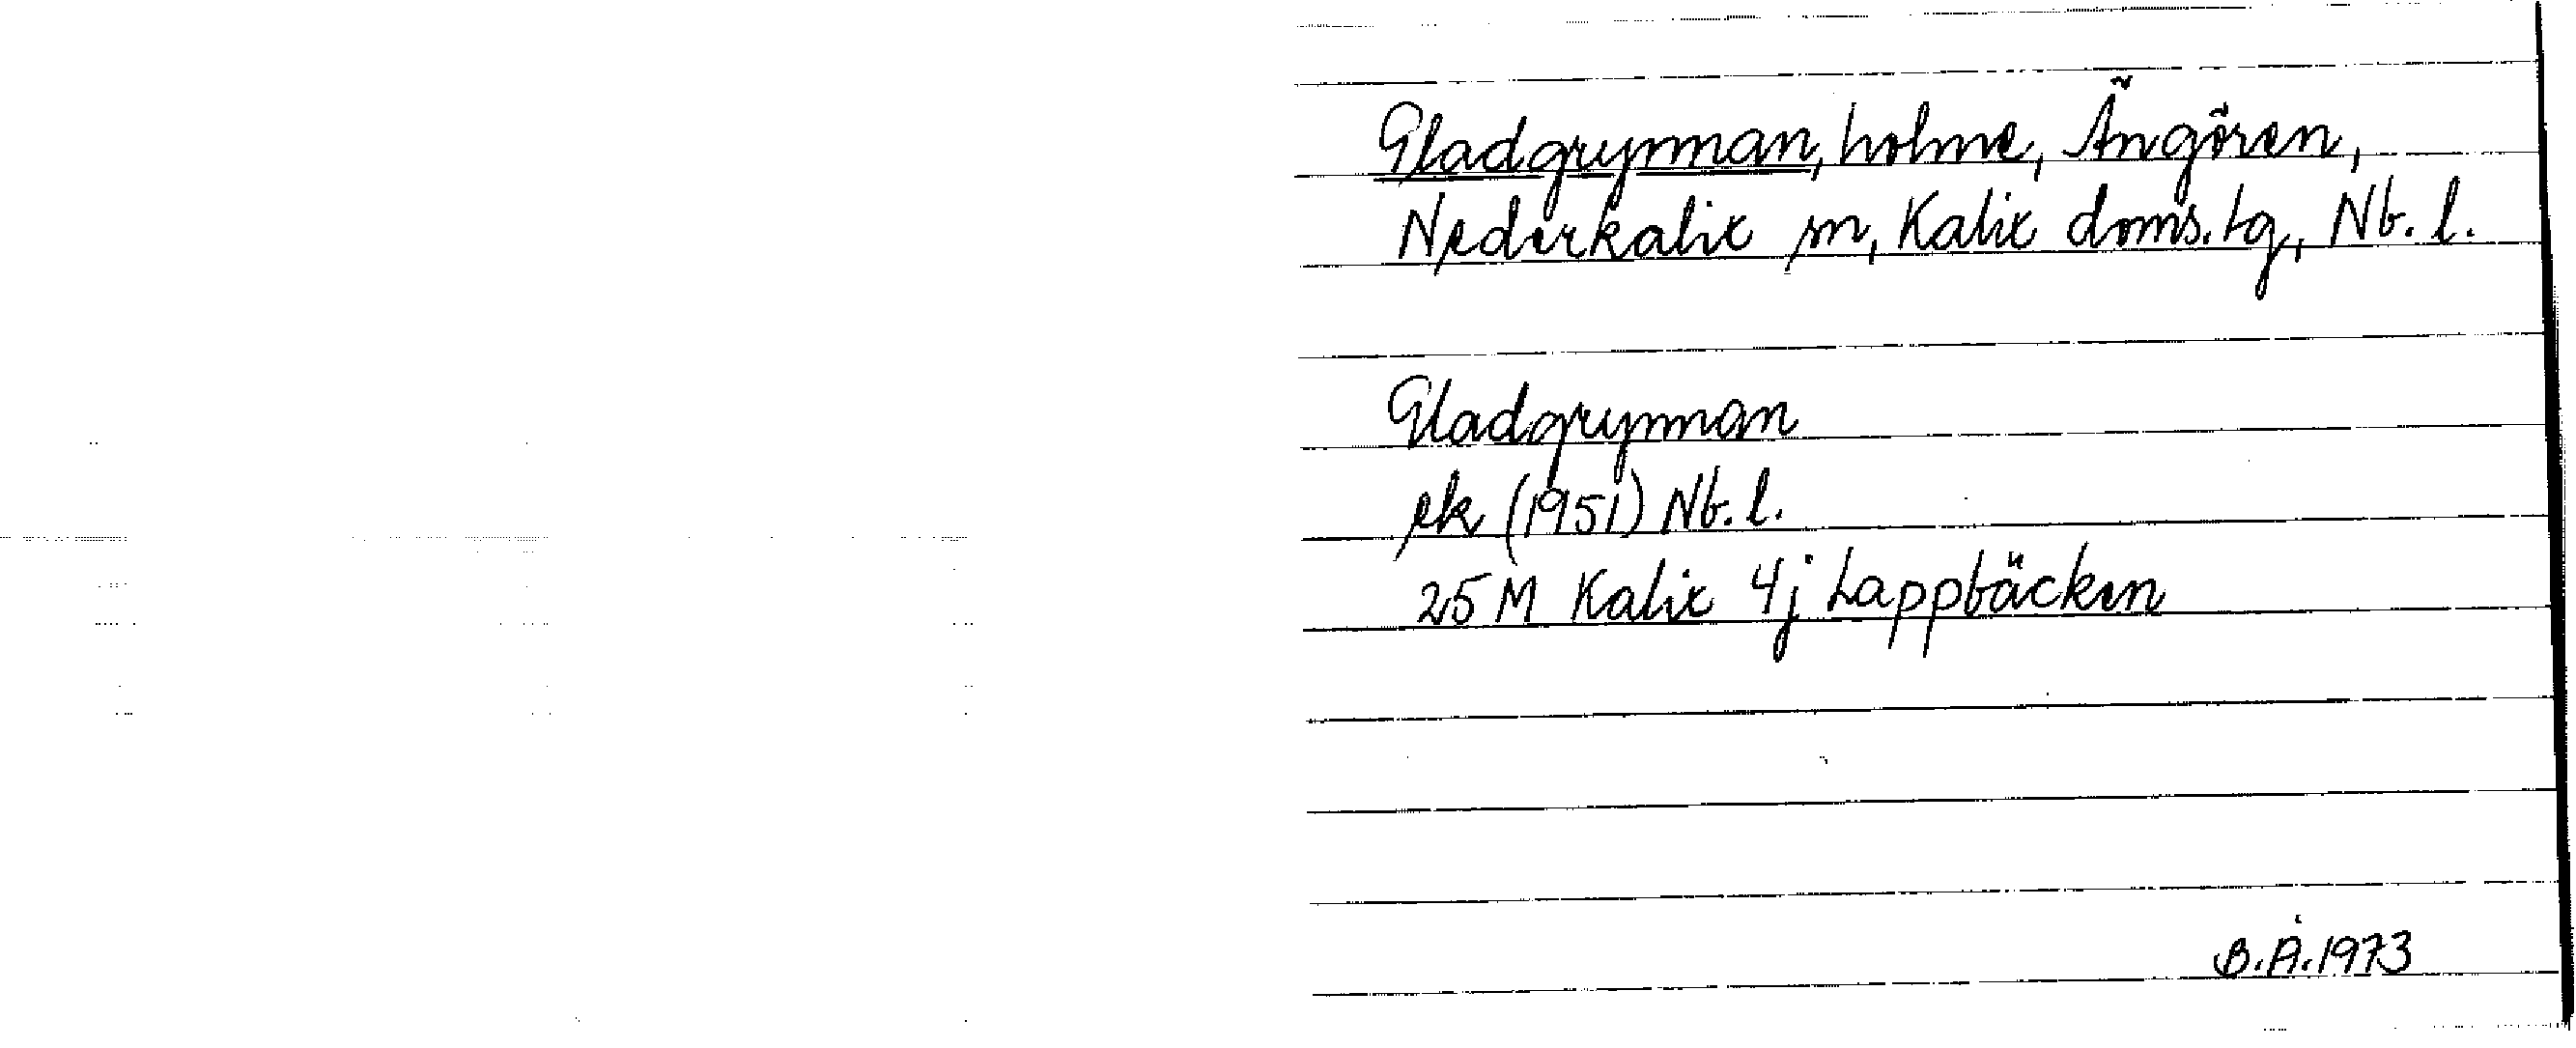 Gladgrynnan, holme, Ängören,
Nederkalix sn, Kalix doms.tg, Nb. l.
Gladgrynnan
ek (1951) Nb. l.
25 M Kalix 4j Lappbäcken
B.Å. 1973